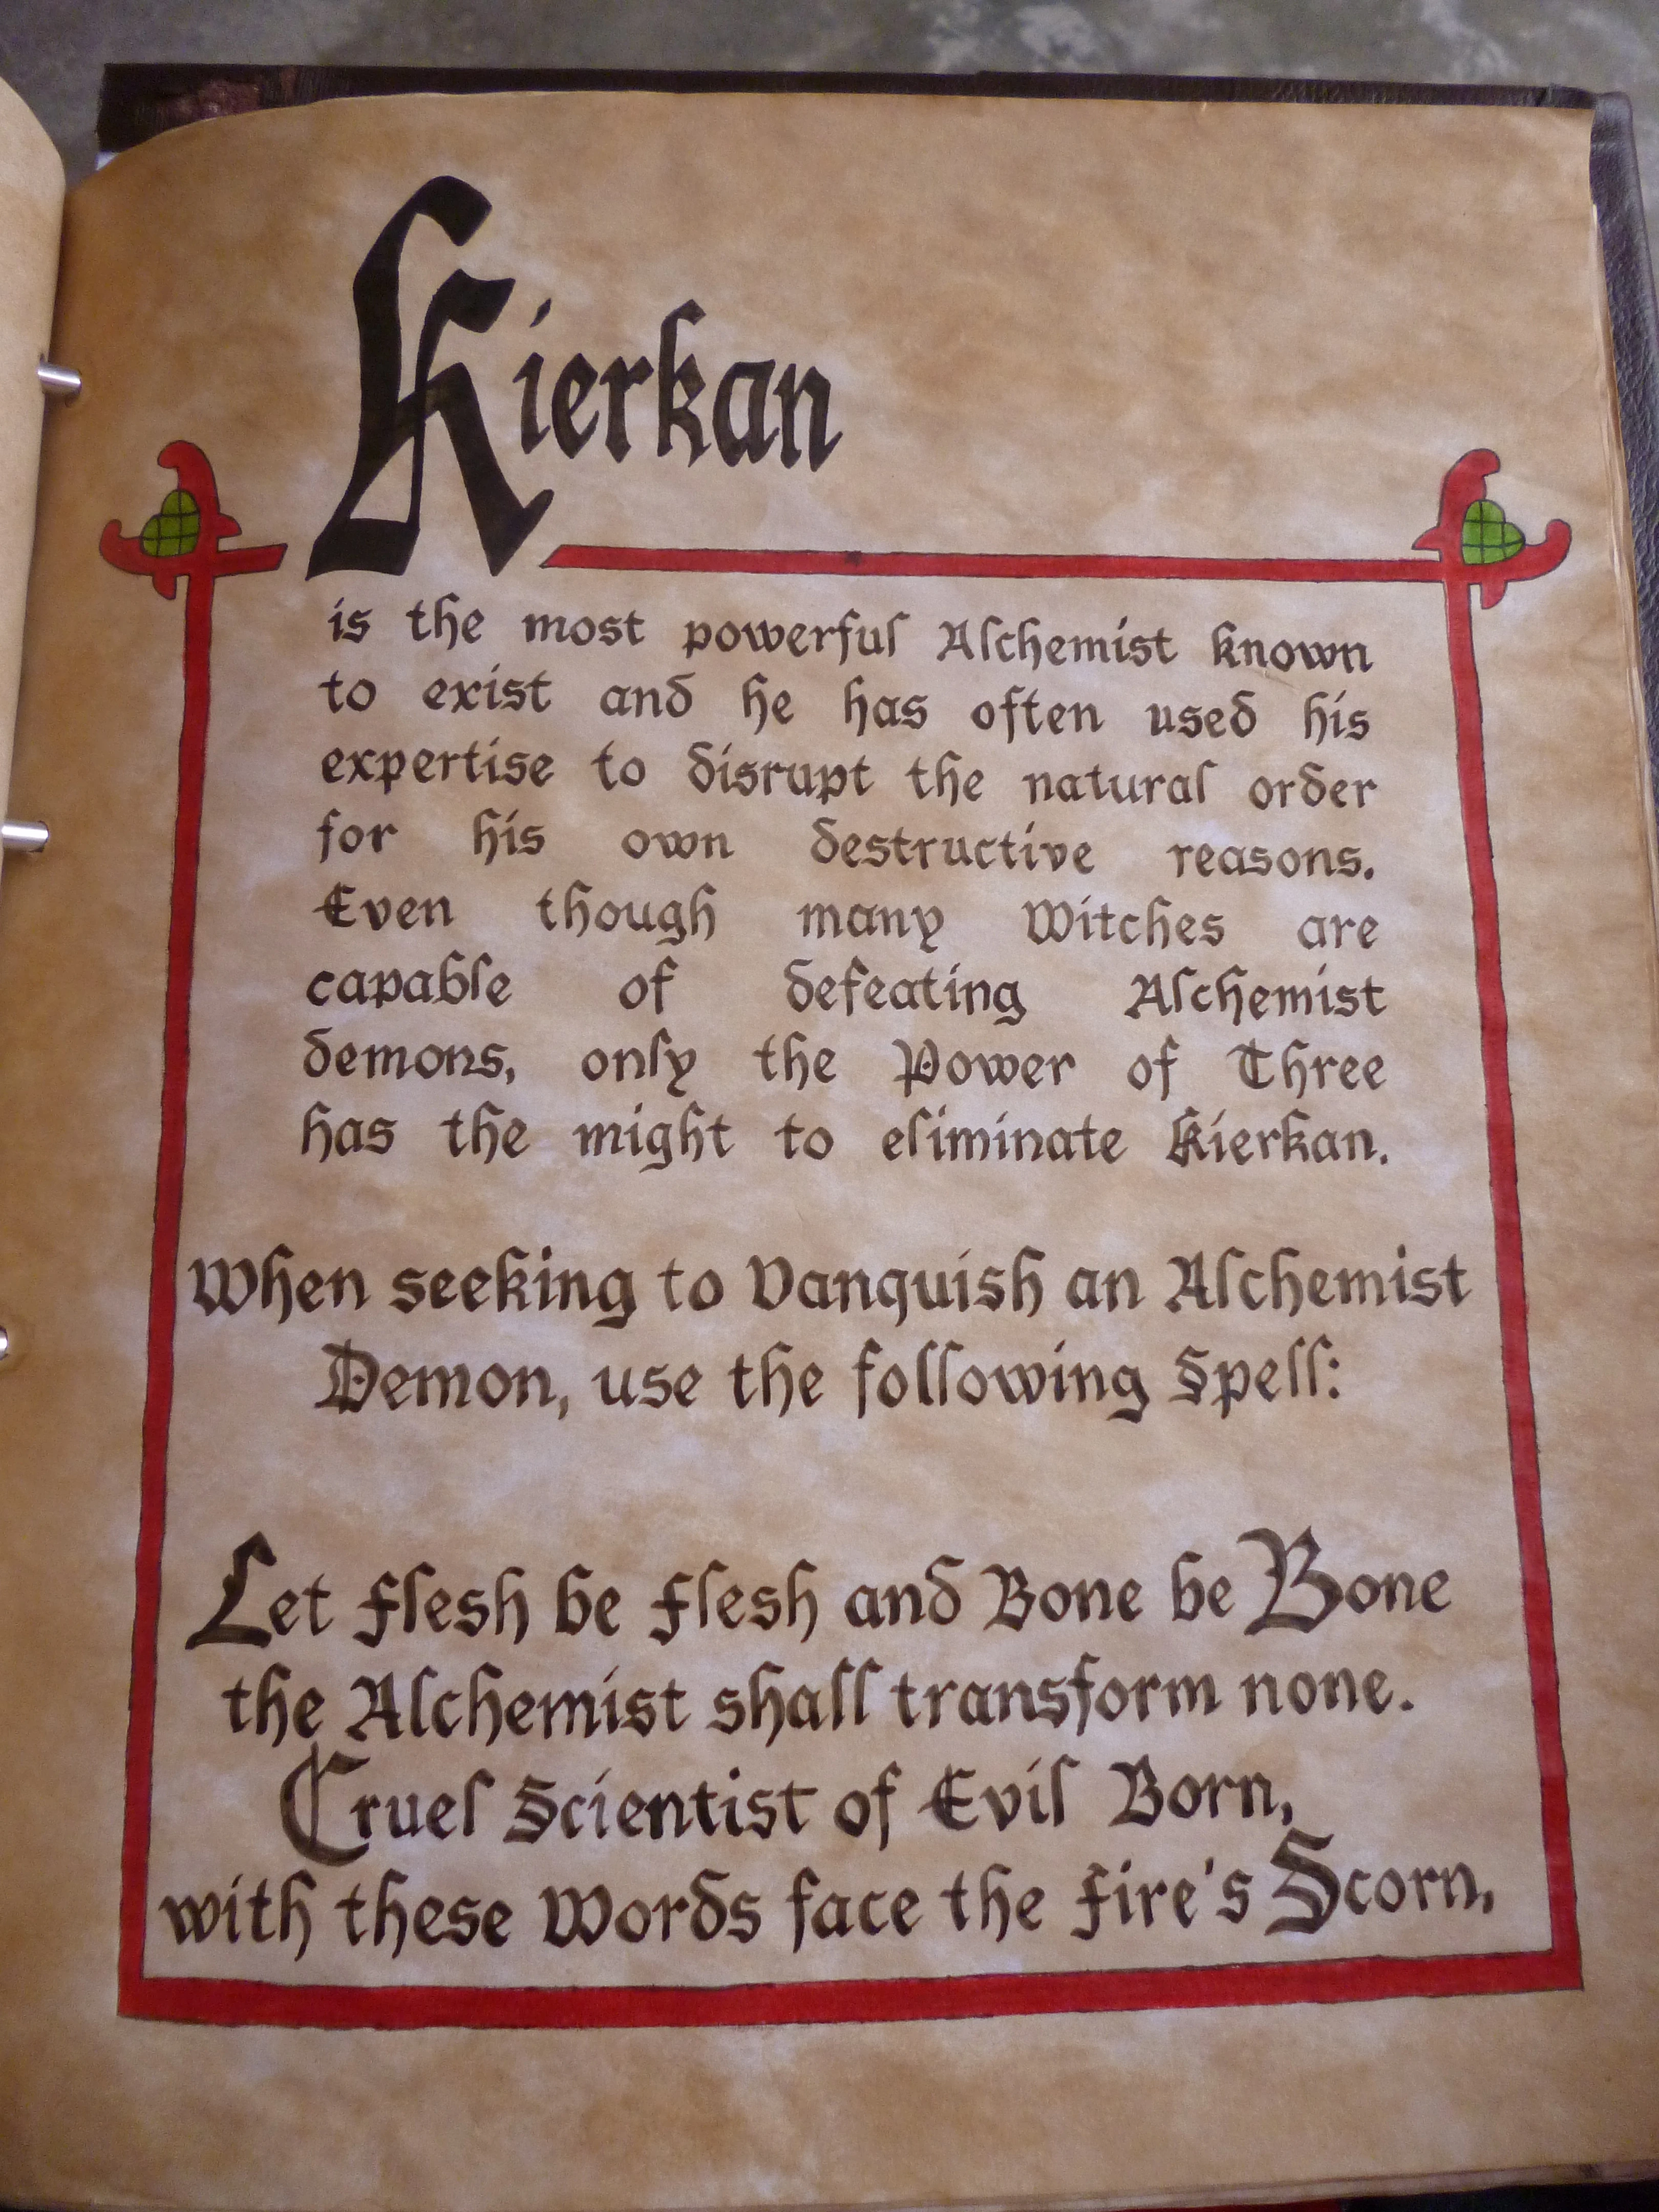 Kierkan
is the most powerful Alchemist known
to exist and he has often used his
expertise to disrupt the natural order
for his own destructive reasons.
Even though many Witches are
capable of defeating Alchemist
demons, only the Power of Three
has the might to eliminate Kierkan.
When seeking to Vanquish an Alchemist
Demon, use the following Spell:
Let Flesh be Flesh and Bone be Bone
the Alchemist shall transform none.
Cruel Scientist of Evil Born,
with these Words face the Fire's Scorn,